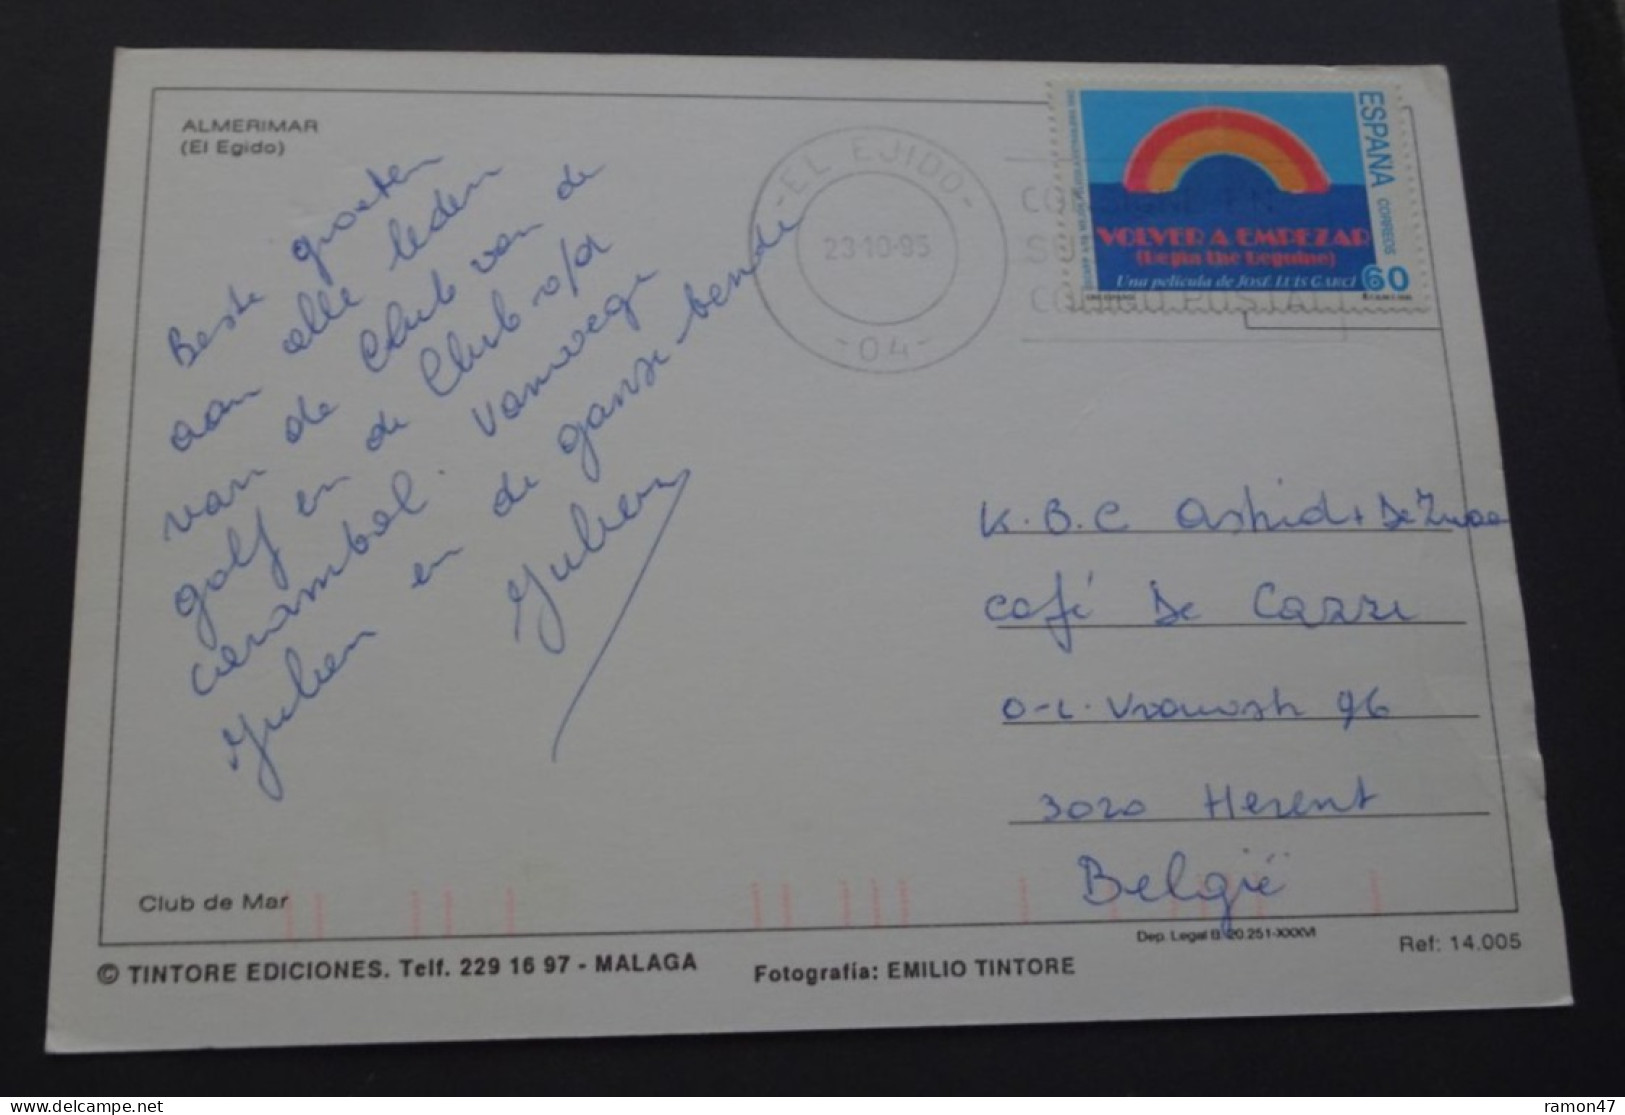 ALMERIMAR
(El Egido)
Beste groeten
aan alle leden
van de Club van de
golf en de Club v/d
carambol. Vanwege
Julien en de ganse bende
Julien
Club de Mar
© TINTORE EDICIONES. Telf. 229 16 97 - MALAGA
Fotografía: EMILIO TINTORE
-EL EJIDO-
23·10·95
-04-
CONSIGNE EN
SU
CODIGO POSTAL
ESPAÑA CORREOS
VOLVER A EMPEZAR
(Begin the Beguine)
Una película de JOSÉ LUIS GARCI
60
K.B.C Astrid + De Zwaa
café De Cazze
O-L. Vrouwstr 96
3020 Herent
België
Dep. Legal B. 20.251-XXXVI
Ref: 14.005
ramon47